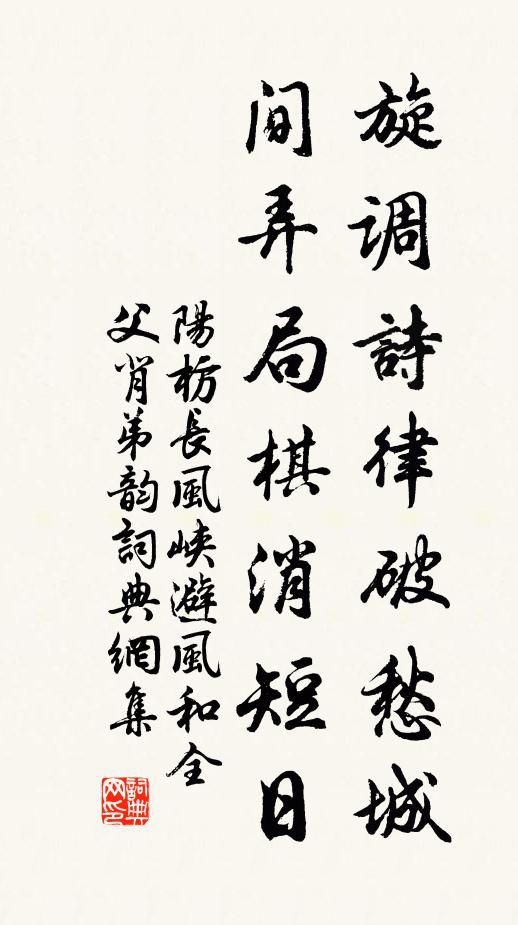 旋调詩律破愁城
间弄局棋消短日
陽枋長風峽避風和全
父肖弟韵詞典網集
詞典网印